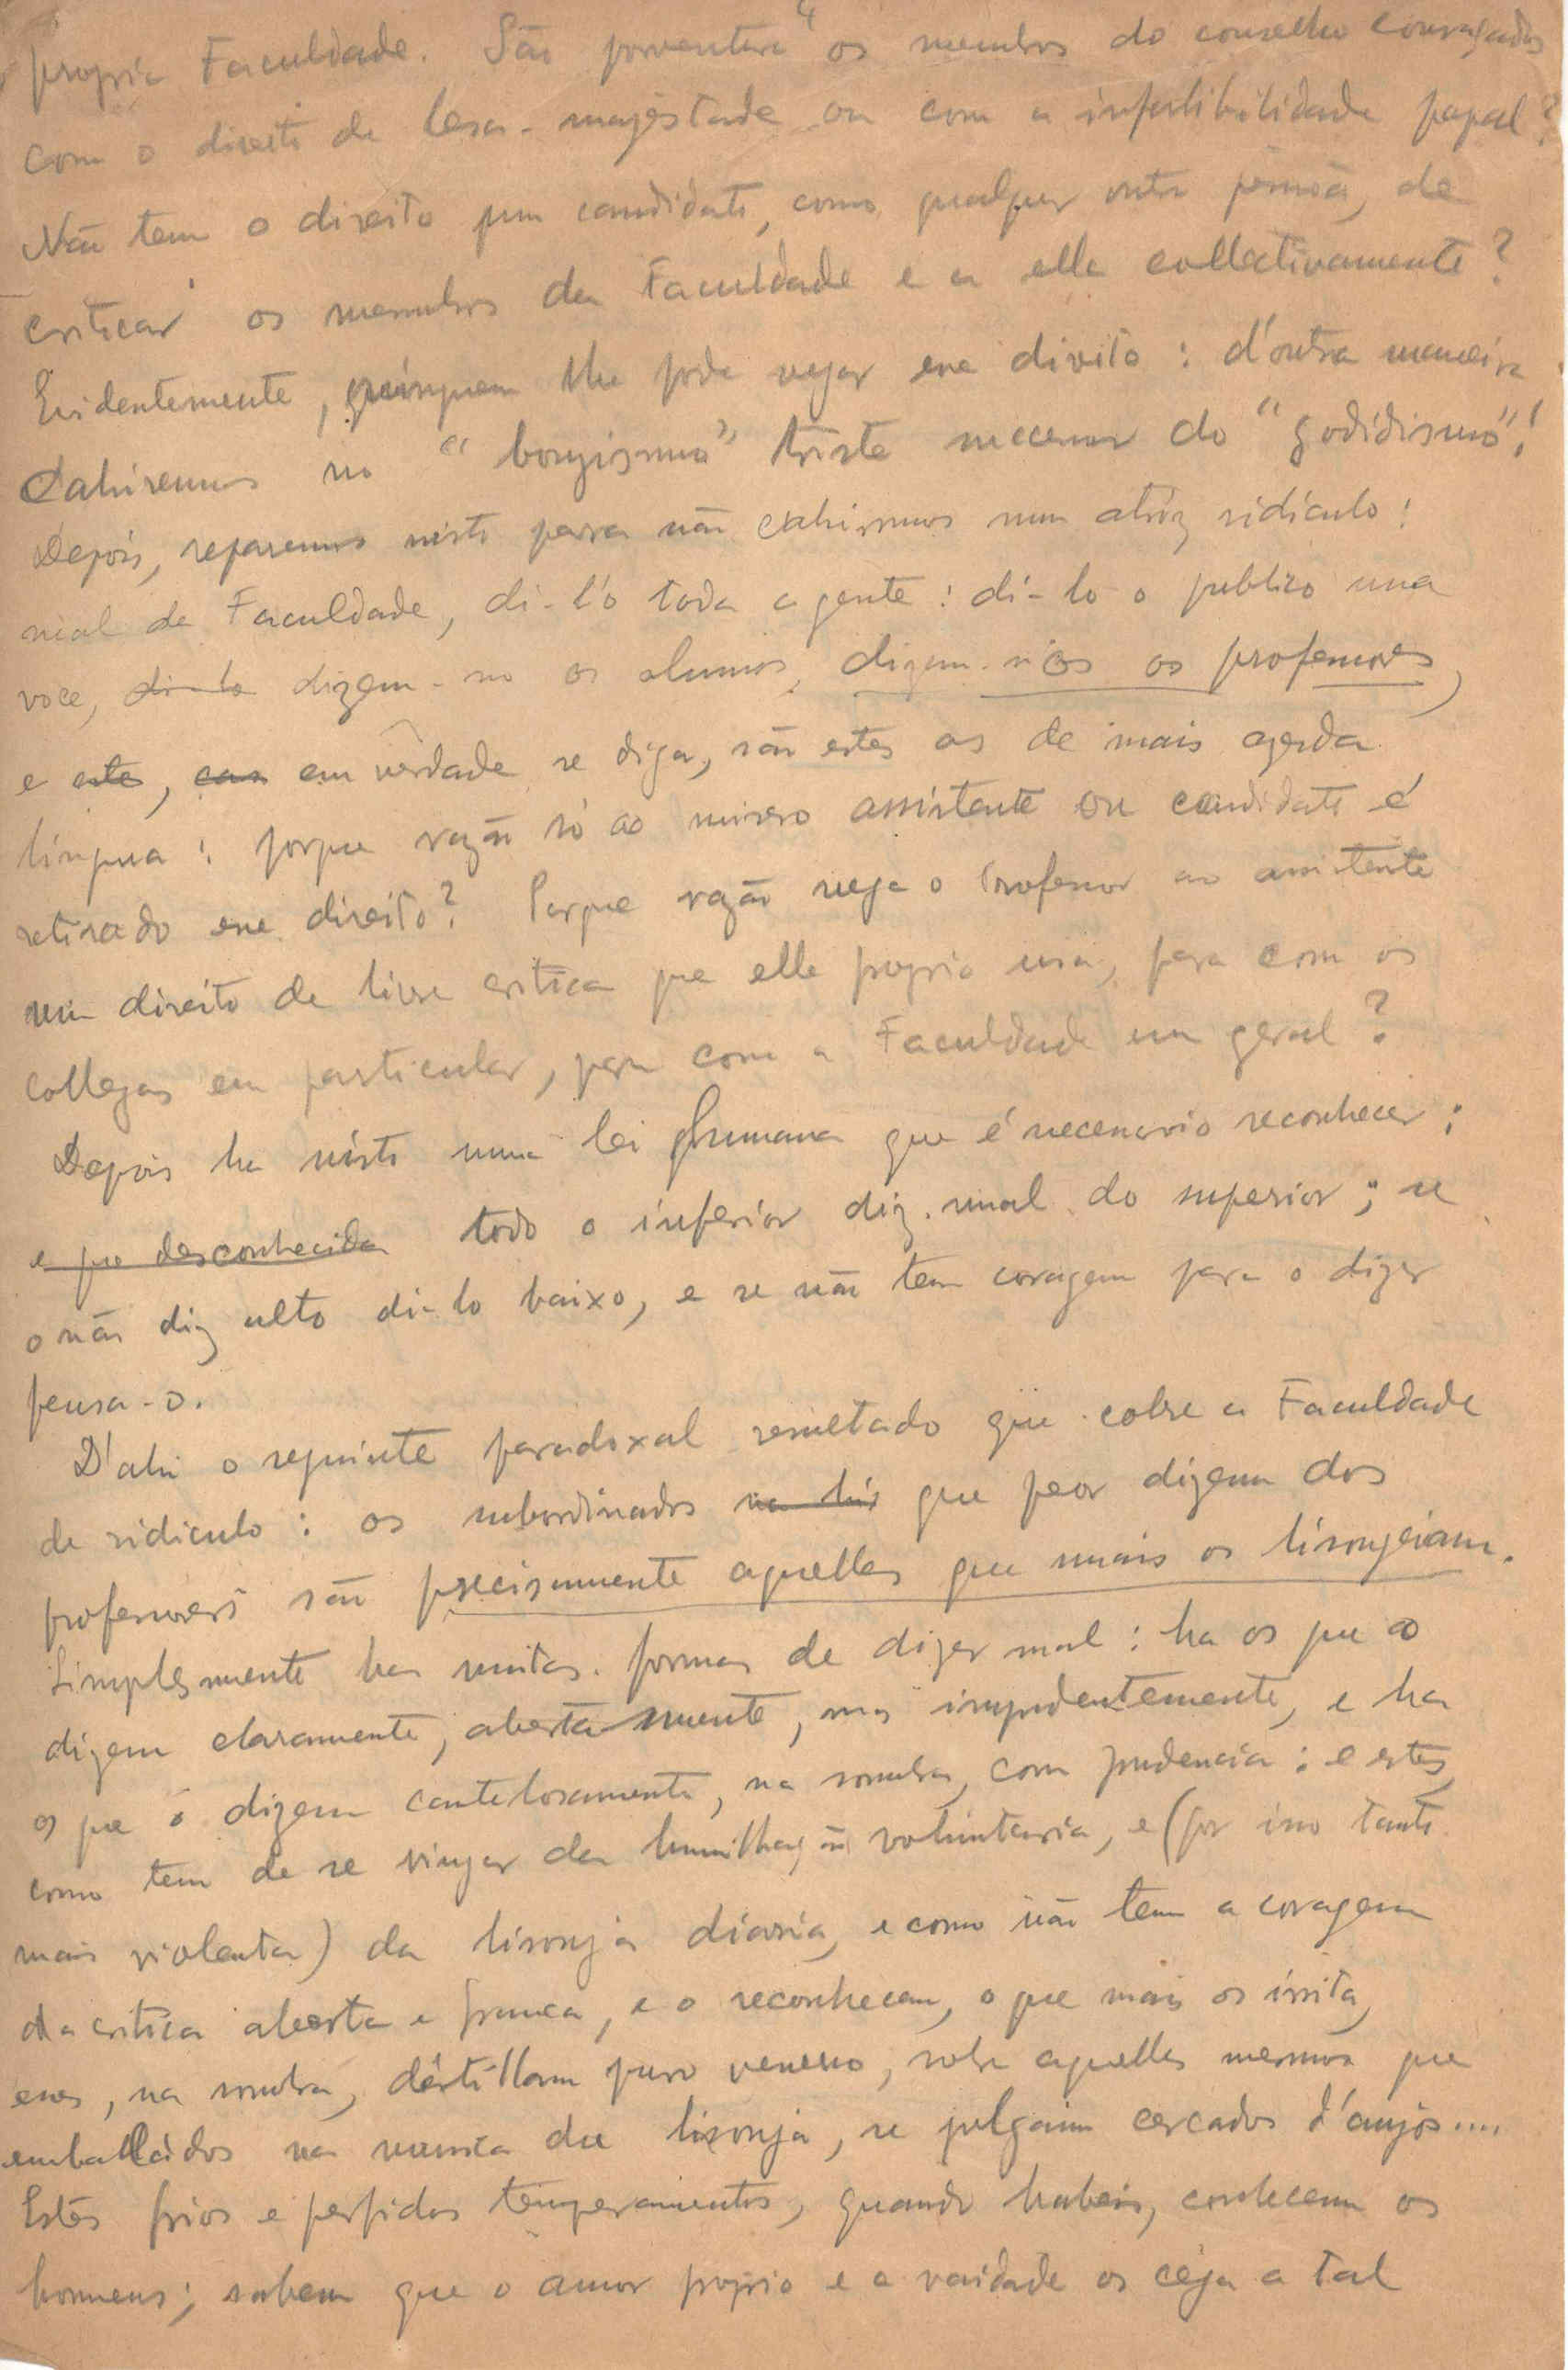 4
propria Faculdade. São porventura os membros do conselho consagrados
com o direito de lesa-magestade ou com a infalibilidade papal?
Não tem o direito um candidato, como qualquer outra pessoa, de
criticar os membros da Faculdade e a ella collectivamente?
Evidentemente, ninguem lhe pode negar esse direito: d'outra maneira
cahiremos no "bonzismo" triste successor do "godidismo"!
Depois, reparemos nisto para não cahirmos num atroz ridículo:
mal da Faculdade, di-l'o toda a gente: di-lo o publico una
voce, di-lo dizem-no os alumnos, dizem-n'os os professores,
e estes, em verdade se diga, são estes os de mais aguda
língua: porque razão só ao misero assistente ou candidato é
retirado esse direito? Porque razão nega o professor ao assistente
um direito de livre critica que elle proprio usa, para com os
collegas em particular, para com a Faculdade em geral?
Depois ha nisto uma lei humana que é necessario reconhecer:
e que desconhecida todo o inferior diz mal do superior; se
o não diz alto di-lo baixo, e se não tem coragem para o dizer
pensa-o.
D'ahi o seguinte paradoxal resultado que cobre a Faculdade
de ridiculo: os subordinados que peor dizem dos
professores são precisamente aquelles que mais os lisongeiam.
Simplesmente ha muitas formas de dizer mal: ha os que o
dizem claramente, abertamente, mas imprudentemente, e ha
os que o dizem cautelosamente, na sombra, com prudencia: e estes,
como tem de se vingar da humilhação voluntaria, e (por isso tanto
mais violenta) da lisonja diária, e como não tem a coragem
da critica aberta e franca, e o reconhecem, o que mais os irrita,
esses, na sombra, destillam puro veneno, sobre aquelles mesmos que
emballados na musica da lisonja, se julgam cercados d'anjos....
Estes frios e perfidos temperamentos, quando habeis, conhecem os
homens; sabem que o amor proprio e a vaidade os cega a tal